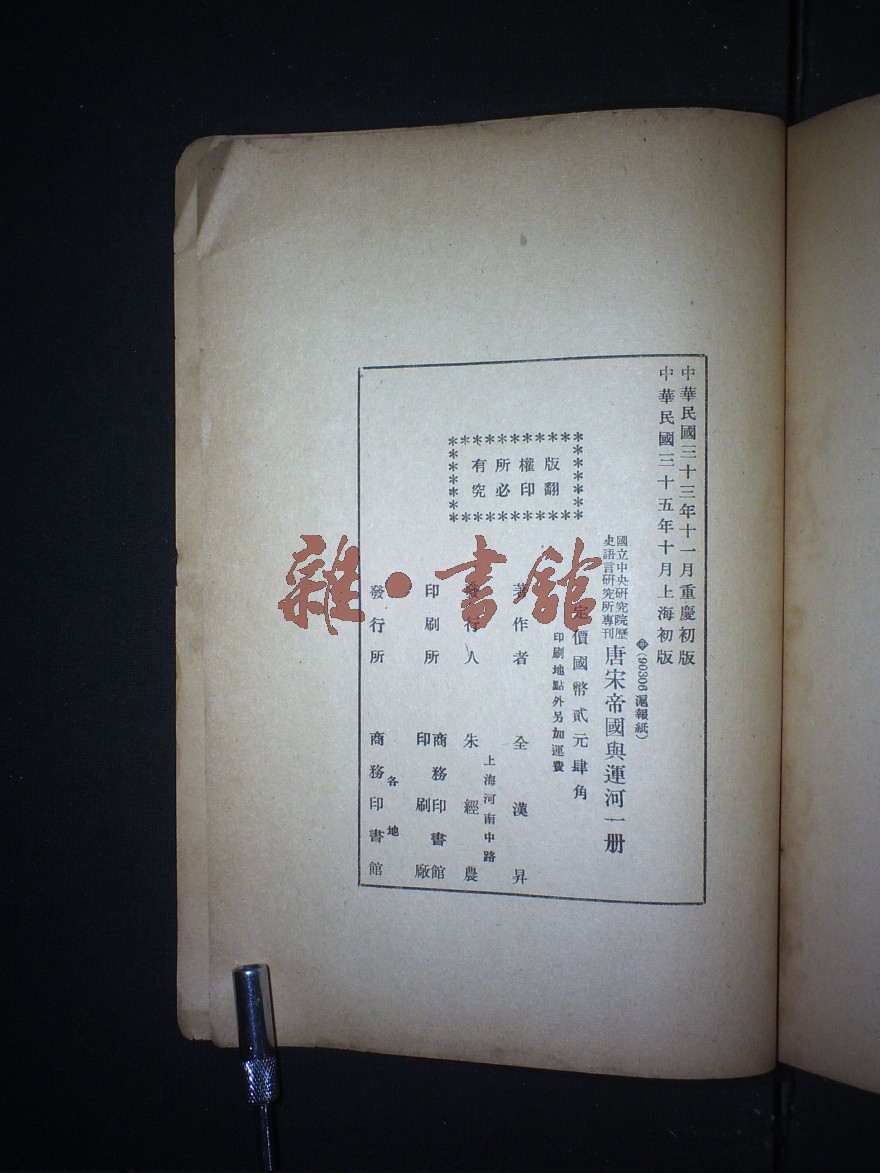 中華民國三十三年十一月重慶初版
中華民國三十五年十月上海初版
(90306 滬報紙)
國立中央研究院歷
史語言研究所專刊
唐宋帝國與運河一册
定價國幣貳元肆角
印刷地點外另加運費
版權所有
翻印必究
著作者 全漢昇
上海河南中路
發行人 朱經農
印刷所 商務印書館
印刷廠
各地
發行所 商務印書館
雜·書館